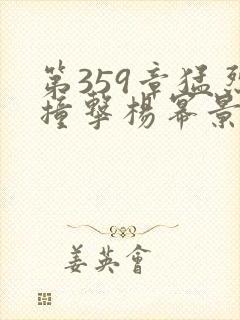 第359章猛烈
撞擊楊冪景
姜英會